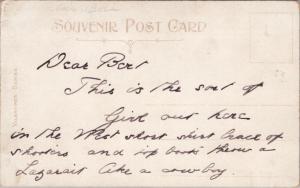 SOUVENIR POST CARD
Dear Bert
This is the sort of
Give out here
in the West short shirt brace of
shooters and top boots throw a
like a cowboy.